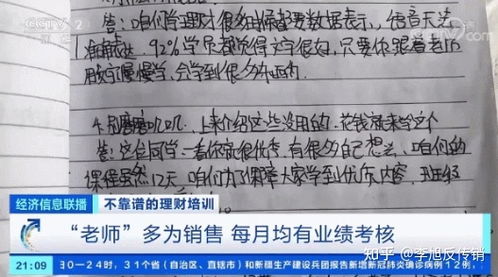 CCTV 2
答：咱们学理财很多时候都要数据表示，语音无法
准确表达，92%学员都觉得文字很好，只要你跟着老师
慢慢学，会学到很多东西的
4.别磨磨叽叽，上来介绍这些没用的，花钱就来学这个
答：这位同学一看你就很优秀，有很多自己想法，咱们的
课程虽然12天，咱们为了保障大家学到优质内容，班班
经济信息联播
不靠谱的理财培训
“老师”多为销售 每月均有业绩考核
21:09
0－24时，31个省（自治区、直辖市）和新疆生产建设兵团报告新增新冠肺炎确诊病例12
知乎 @李旭反传销